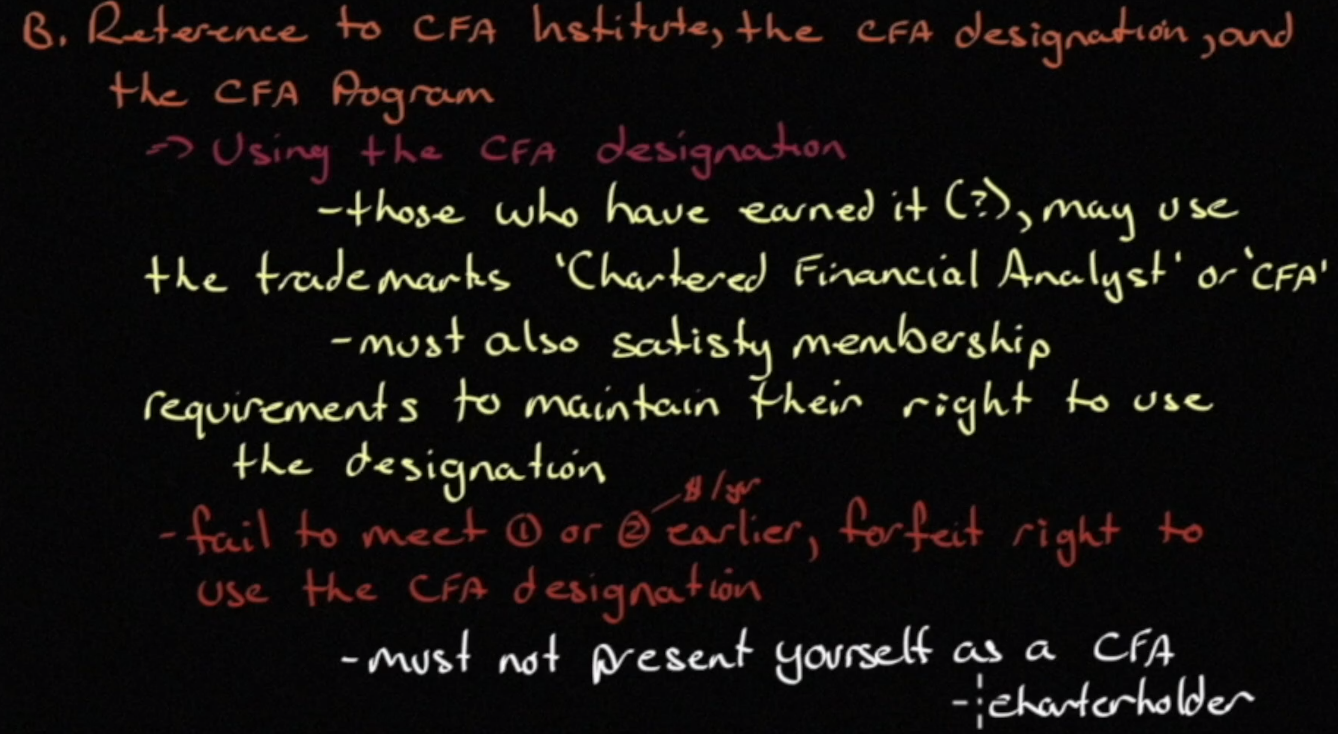 B. Reference to CFA Institute, the CFA designation, and
the CFA Program
=> Using the CFA designation
- those who have earned it (?), may use
the trademarks 'Chartered Financial Analyst' or 'CFA'
- must also satisfy membership
requirements to maintain their right to use
the designation
$/yr
- fail to meet ① or ② earlier, forfeit right to
use the CFA designation
- must not present yourself as a CFA
- charterholder